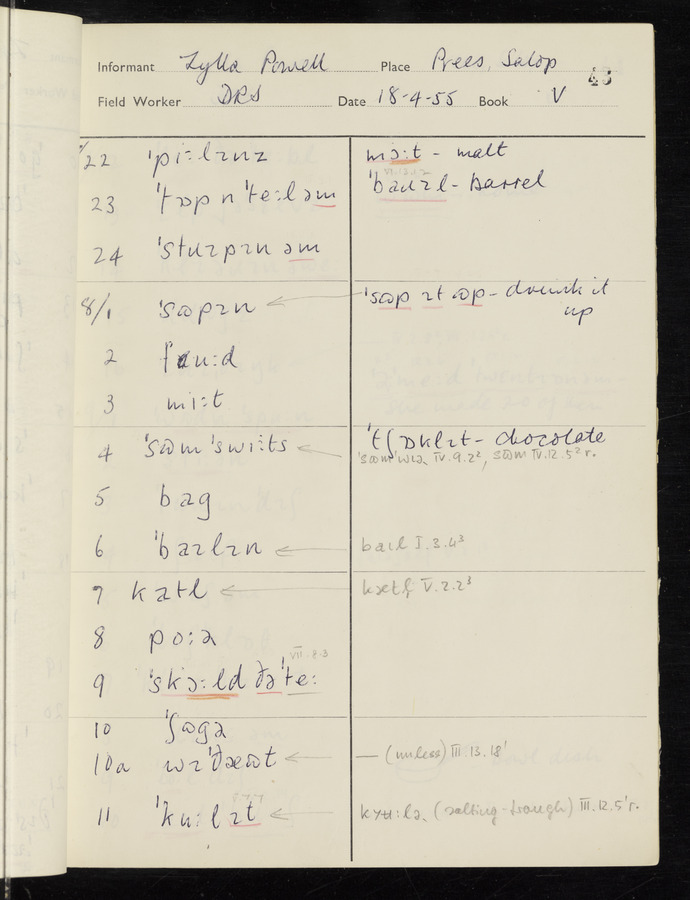 Informant Zylla Powell Place Prees, Salop 45
Field Worker DRS Date 18-4-55 Book V
7/22 ˈpiːlɪnz mɔːt - malt
VI.12.12
23 ˈtɒp n ˈteːl əm ˈbaɪɪl - barrel
24 ˈstʊɪpɪn əm
8/1 ˈsɷpɪn ← ˈsɷp ɪt ɷp - drink it
up
2 fuːd
3 miːt
4 ˈsɷm ˈswiːts ← ˈtʃɒklɪt - chocolate
IV.9.2², sɷm IV.12.5² r.
5 bag
6 ˈbaɪlɪn ← baɪl I.3.4³
7 kɛtl ← kɛtʃ V.2.2³
8 pɔːə
VII.8.3
9 ˈskɔːld ðə ˈteː
10 ˈʃɷgə
10a wɪˈðæɷt ← — (unless) III.13.18ˈ
11 ˈkuːl ɪt ← (salting-trough) III.12.5ˈr.